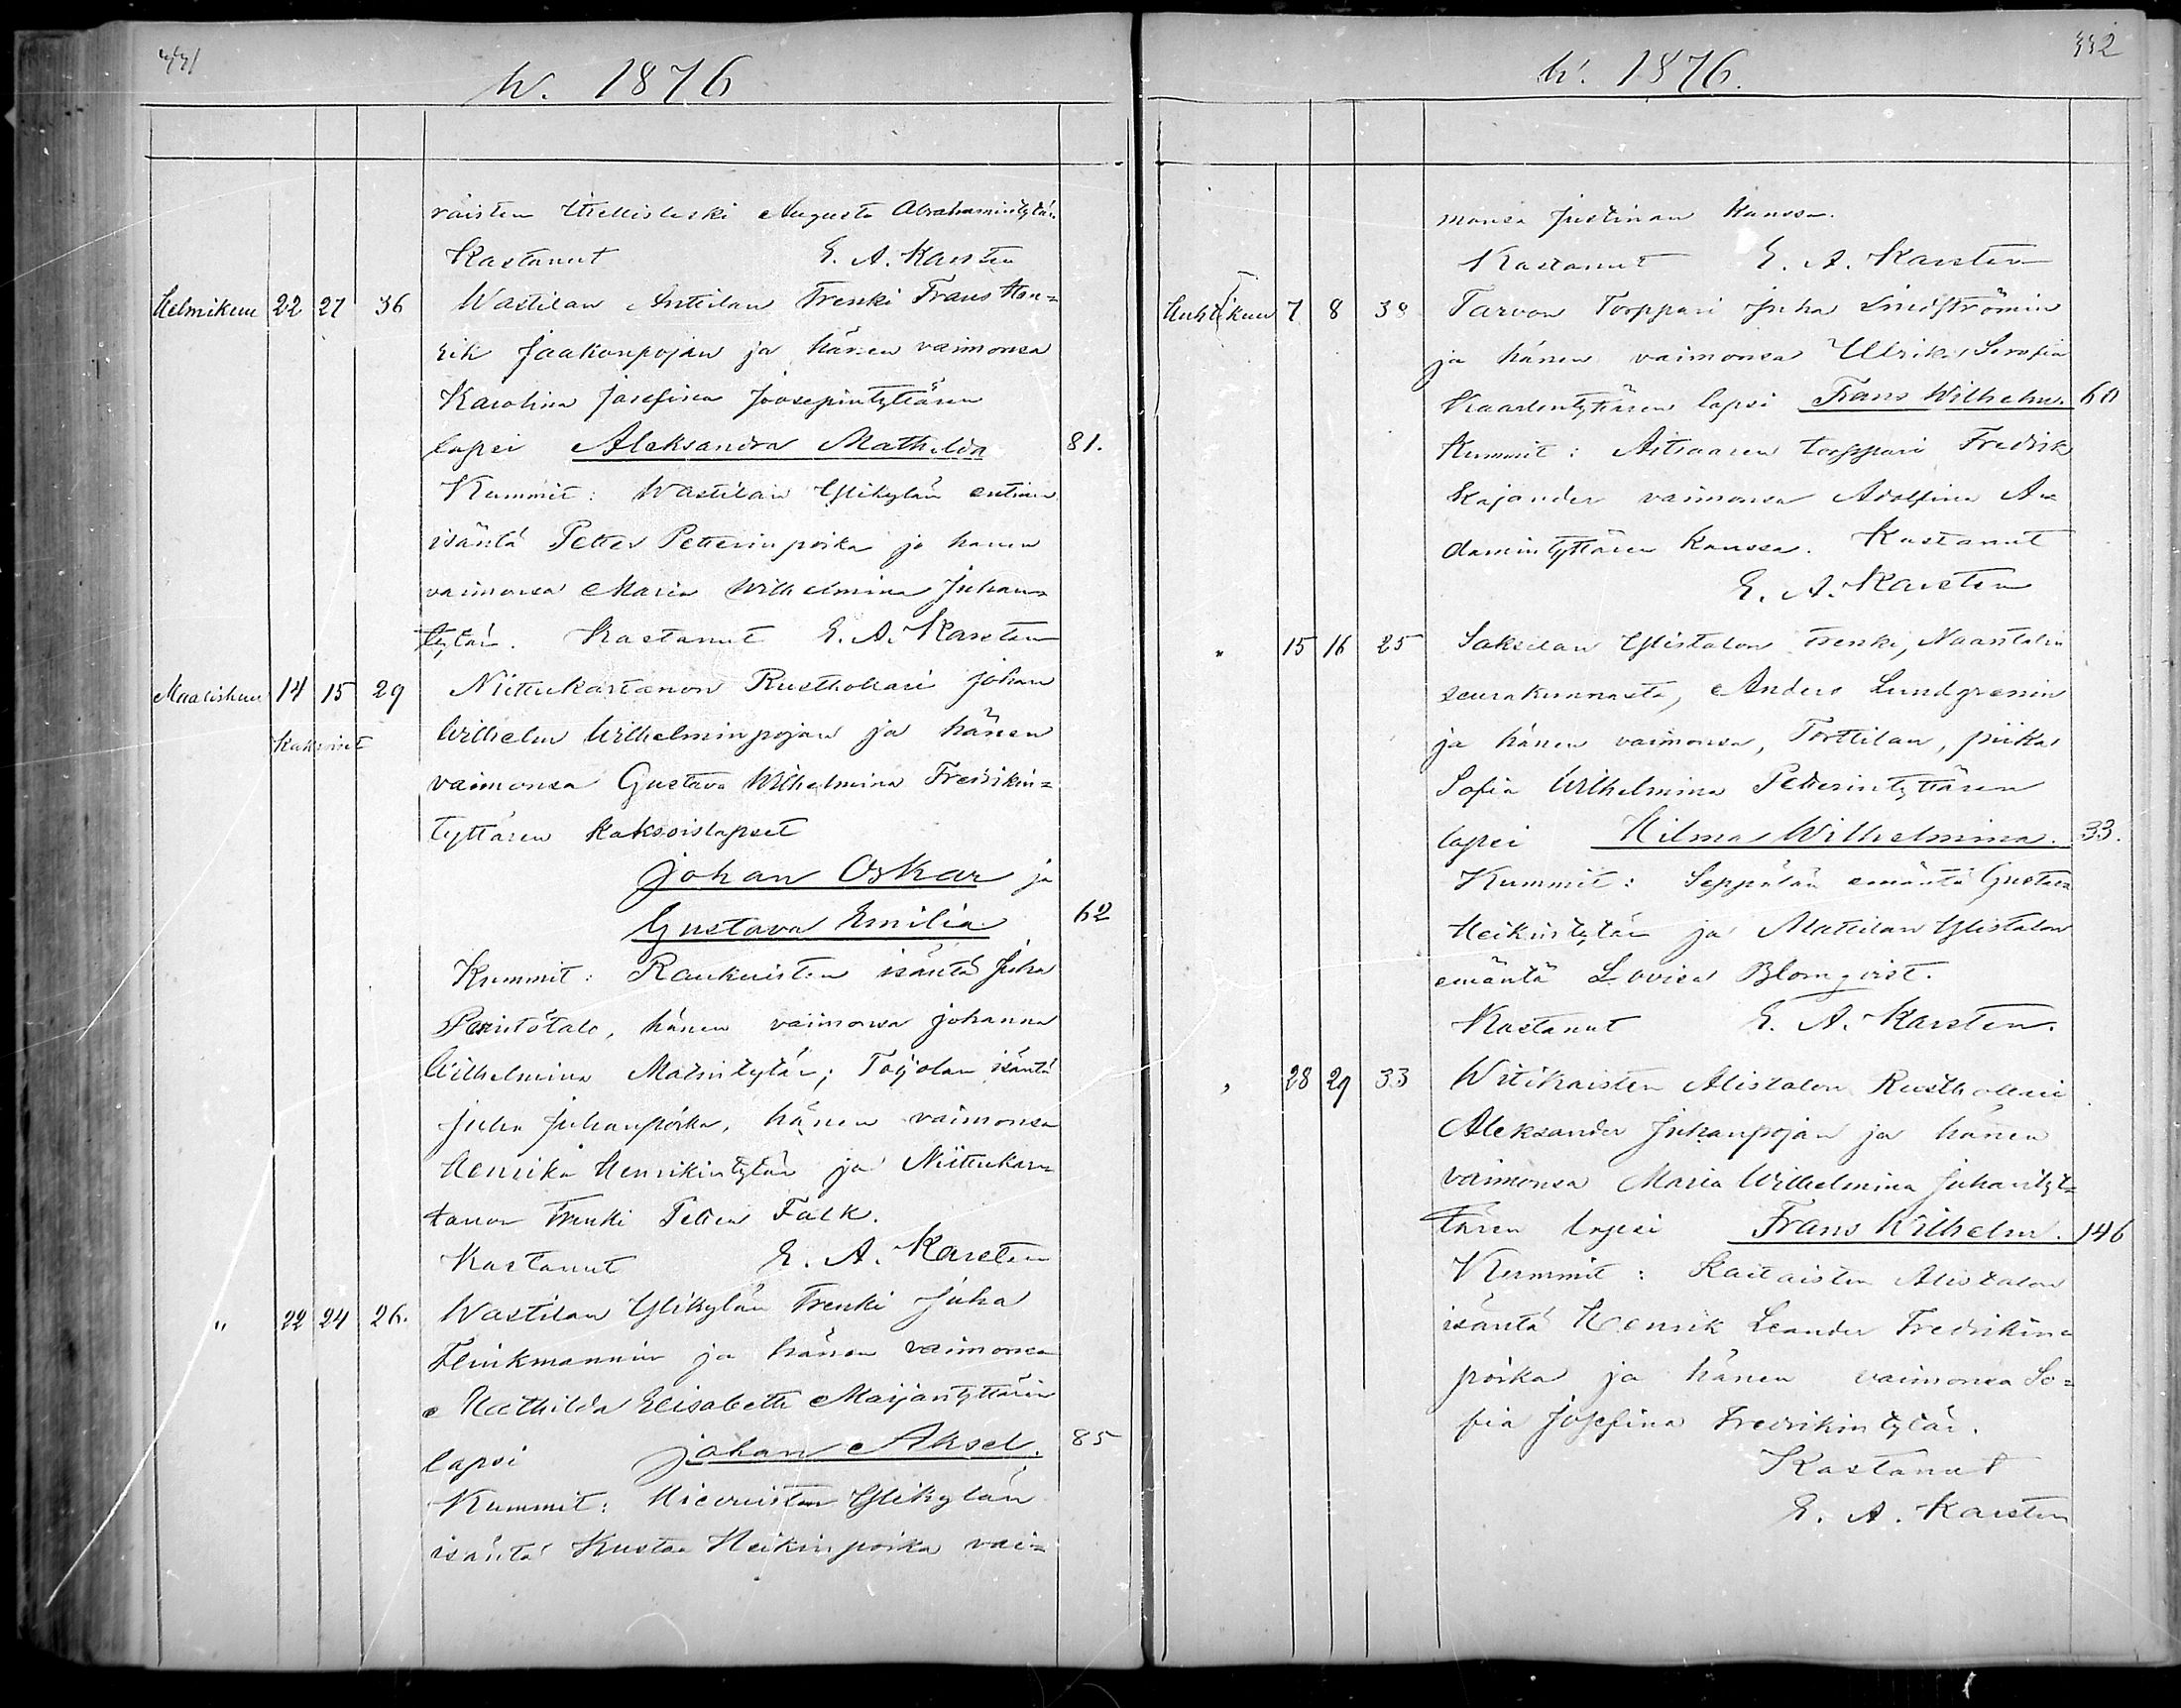 w. 1876
räisten Itsellisleski Augusta Abrahamintytär
Kastanut E. A. Karsten
Helmikuu 22 27 36 Wastilan Anttilan Trenki Frans Hen=
rik Jaakonpojan ja hänen vaimonsa
Karolina Josefina Joosepintyttären
lapsi Aleksandra Mathilda 81.
Kummit: Wastilan Ylikylän entinen
isäntä Petter Petterinpoika ja hänen
vaimonsa Maria Wilhelmina Juhan=
tytär. Kastanut E. A. Karsten
Maaliskuu 14 15 29 Niittukartanon Rusthollari Johan
Kaksoiset Wilhelm Wilhelminpojan ja hänen
vaimonsa Gustava Wilhelmina Fredrikin=
tyttären kaksoislapset
Johan Oskar ja
Gustava Emilia 62
Kummit: Raukuisten isäntä Juha
Perintötalo, hänen vaimonsa Johanna
Wilhelmina Matintytär; Toijolan isäntä
Juha Juhanpoika, hänen vaimonsa
Henrika Henrikintytär ja Niittukar=
tanon Trenki Petter Falk.
Kastanut E. A. Karsten
" 22 24 26. Wastilan Ylikylän Trenki Juha
Flinkmannin ja hänen vaimonsa
Mathilda Elisabeth Maijantyttären
lapsi Johan Aksel. 85
Kummit: Ylikylän
isäntä Kustaa Heikinpoika vai=
332
w. 1876.
monsa Justinan kanssa.
Kastanut E. A. Karsten
Huhtikuu 7 8 38 Tarvon Torppari Juha Lindströmin
ja hänen vaimonsa Ulrika Serafia
Kaarlentyttären lapsi Frans Wilhelm. 60
Kummit: Aitsaaren torppari Fredrik
Kajander vaimonsa Adolfina A=
damintyttären kanssa. Kastanut
E. A. Karsten
" 15 16 25 Saksilan Ylistalon trenki, Naantalin
seurakunnasta, Anders Lundgrenin
ja hänen vaimonsa, Torttilan, piika
Sofia Wilhelmina Petterintyttären
lapsi Hilma Wilhelmina. 33.
Kummit: Seppälän emäntä Gustava
Heikintytär ja Mattilan Ylistalon
emäntä Lovisa Blomqvist.
Kastanut E. A. Karsten.
" 28 29 33 Witikaisten Alistalon Rusthollari
Aleksander Juhanpojan ja hänen
vaimonsa Maria Wilhelmina Juhantyt=
tären lapsi Frans Wilhelm. 146
Kummit: Kaitaisten Alistalon
isäntä Henrik Leander Fredrikin=
poika ja hänen vaimonsa So=
fia Josefina Fredrikintytär.
Kastanut
E. A. Karsten